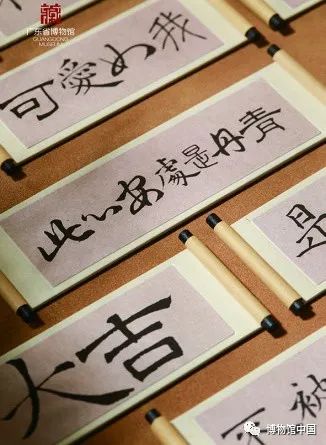 广东省博物馆
GUANGDONG MUSEUM
可愛如我
此心安處是丹青
是
大吉
博物馆中国